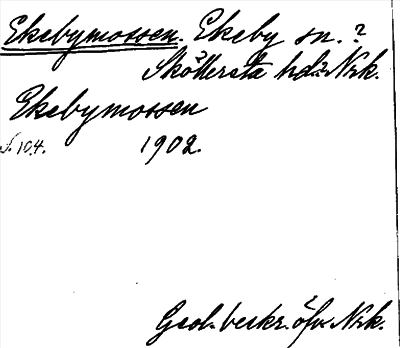 Ekebymossen. Ekeby sn.?
Sköllersta hd. Nrk.
Ekebymossen
s. 104. 1902.
Geol. beskr. öfv. Nrk.